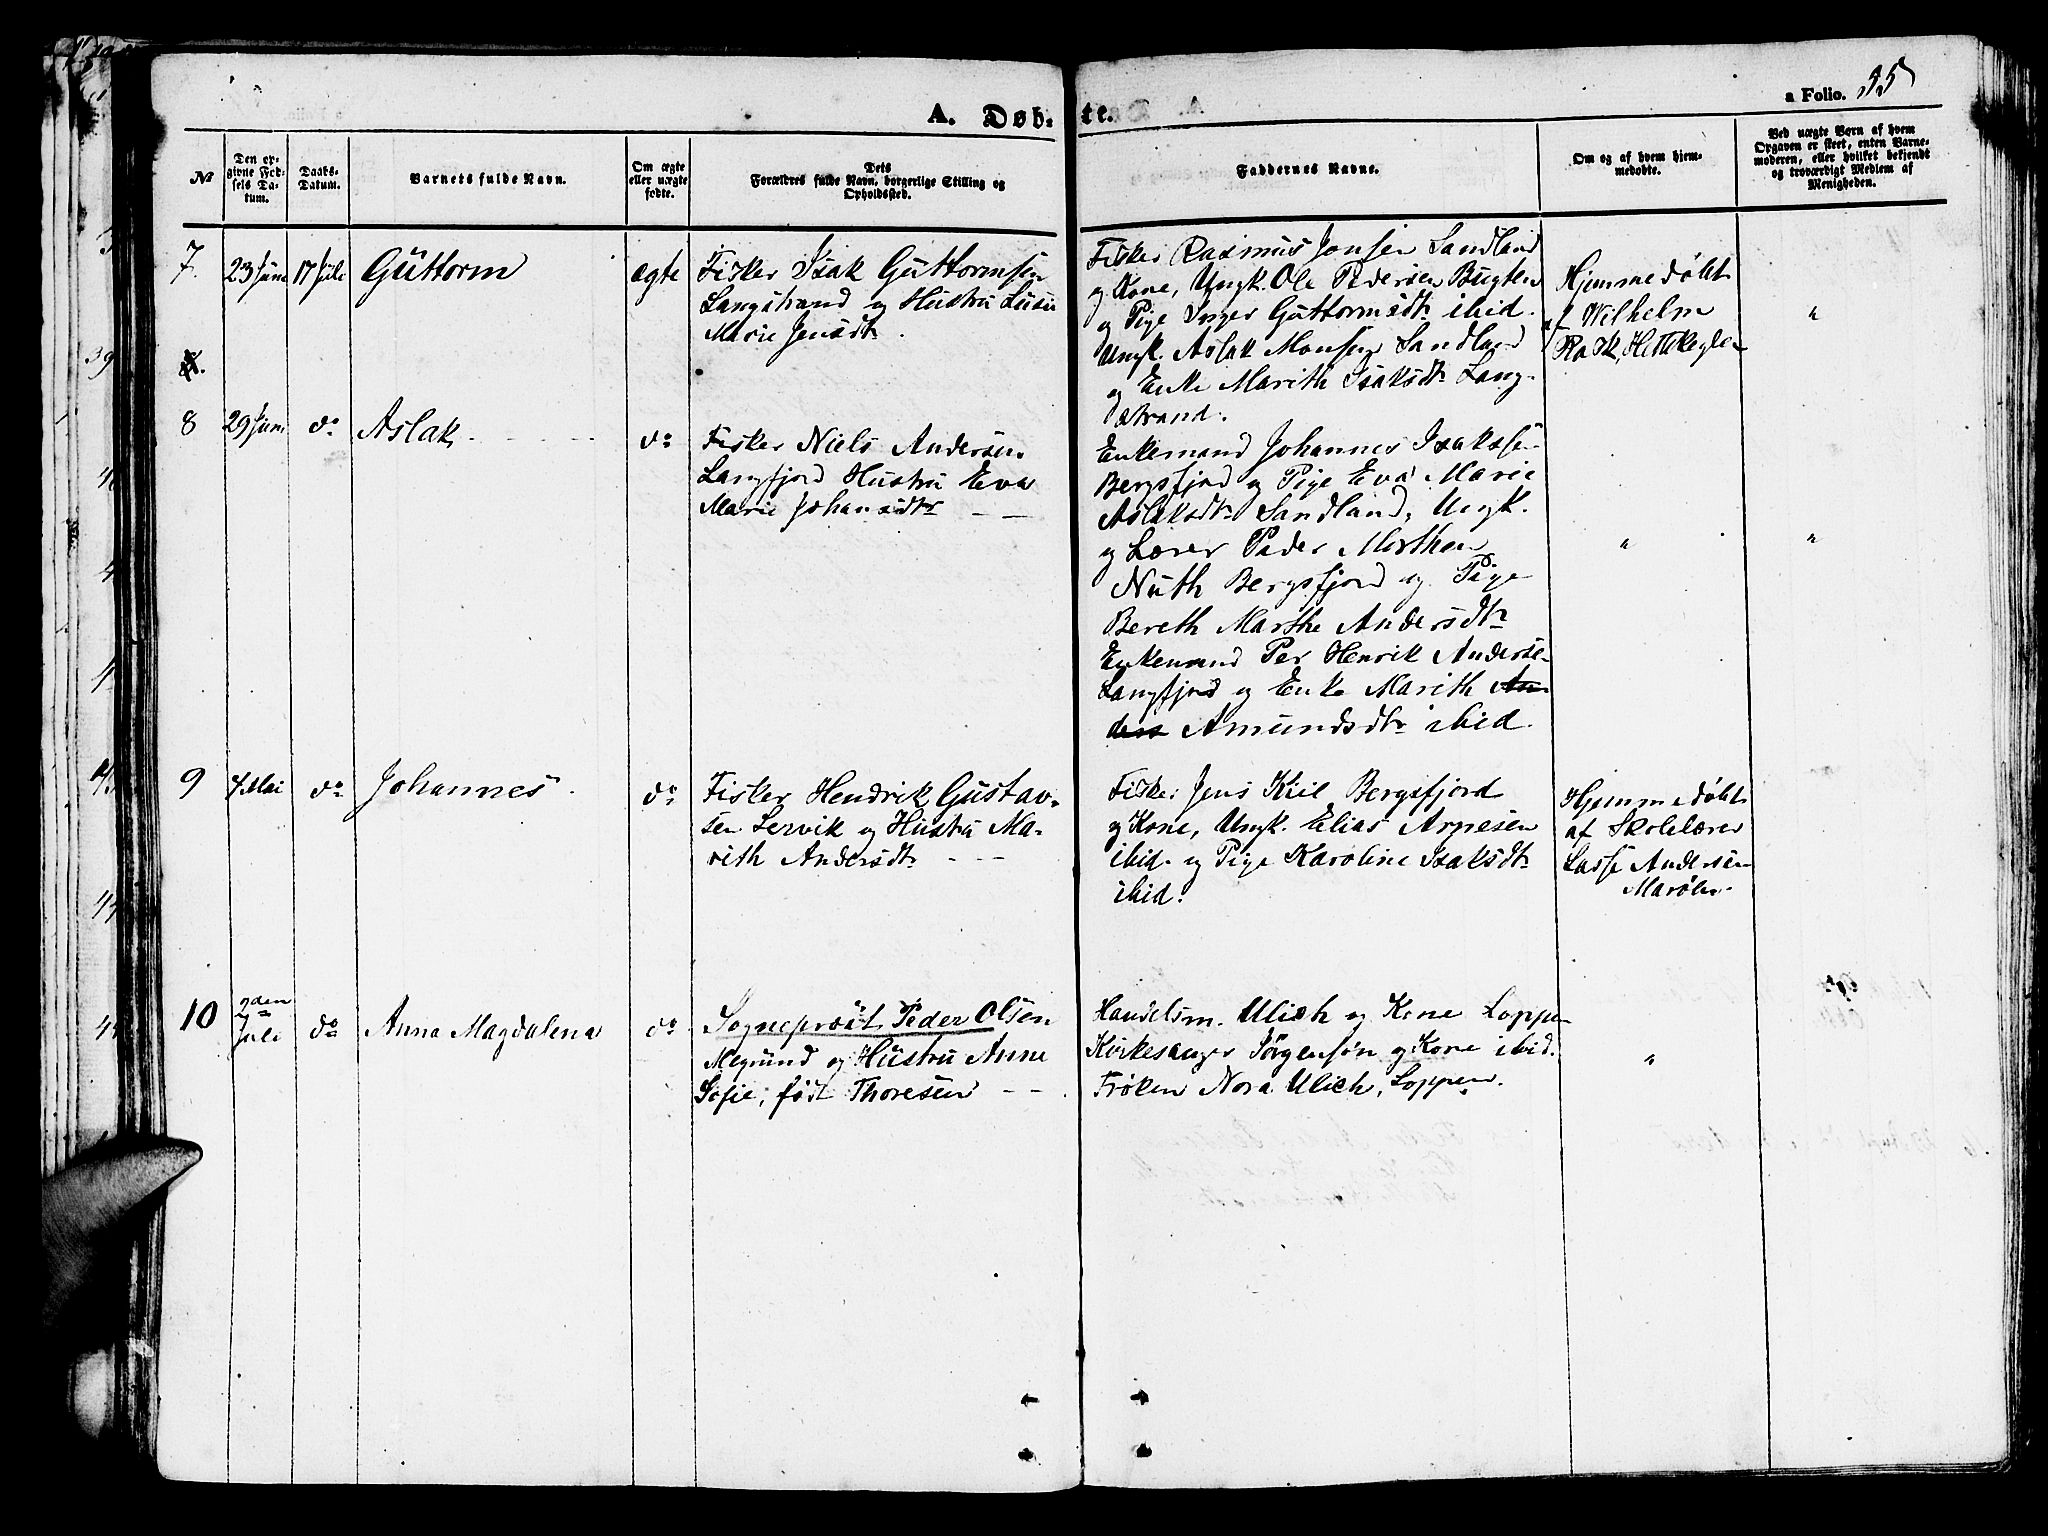 a Folio. 35
A. Døbte.
№
Den opgivne Fødsels Datum.
Daabs-Datum.
Barnets fulde Navn.
Om ægte eller uægte fødte.
Dets Forældres fulde Navn, borgerlige Stilling og Opholdssted.
Faddernes Navne.
Om og af hvem hjemmedøbte.
Ved uægte Børn af hvem Opgaven er skeet, enten Barnemoderen, eller hvilket bekjendt og troværdigt Medlem af Menigheden.
7. 23 Juni 17 Juli Guttorm ægte
Fisker Isak Guttormsen
Langstrand og Hustru Lusie
Marie Jensdtr.
Fisker Rasmus Jonsen Sandland
og Kone, Ungk. Ole Pedersen Bugten
og Pige Inger Guttormsdtr ibid.
Ungk. Aslak Monsen Sandland
og Enke Marith Isaksdtr Lang-
strand.
Hjemmedøbt
af Wilhelm
Rask, Hettekeylen
"
8 29 Juni do Aslak do
Fisker Niels Andersen
Langfjord Hustru Eva
Marie Johansdtr
Enkemand Johannes Isakse-
Bergsfjord og Pige Eva Marie
Aslaksdtr Sandland, Ungk.
og Lærer Peder Morthen
Nuth Bergsfjord og Pige
Bereth Marthe Andersdtr
Enkemand Per Henrik Anderse-
Langfjord og Enke Marith An-
ders Amundsdtr ibid.
" "
9 7 Mai do Johannes do
Fisker Hendrik Gustav-
sen Lervik og Hustru Ma-
rith Andersdtr
Fisker Jens Kiil Bergsfjord
og Kone, Ungk. Elias Arnesen
ibid. og Pige Karoline Isaksdtr
ibid.
Hjemmedøbt
af Skolelærer
Lasse Andersen
10 2den Juli do Anna Magdalena do
Sogneprest Peder Olsen
Megrund og Hustru Anne
Sofie, født Thoresen
Handelsm. Ulich og Kone Loppen
Kirkesanger Jørgensen og Kone ibid.
Frøken Nora Ulich, Loppen.
"